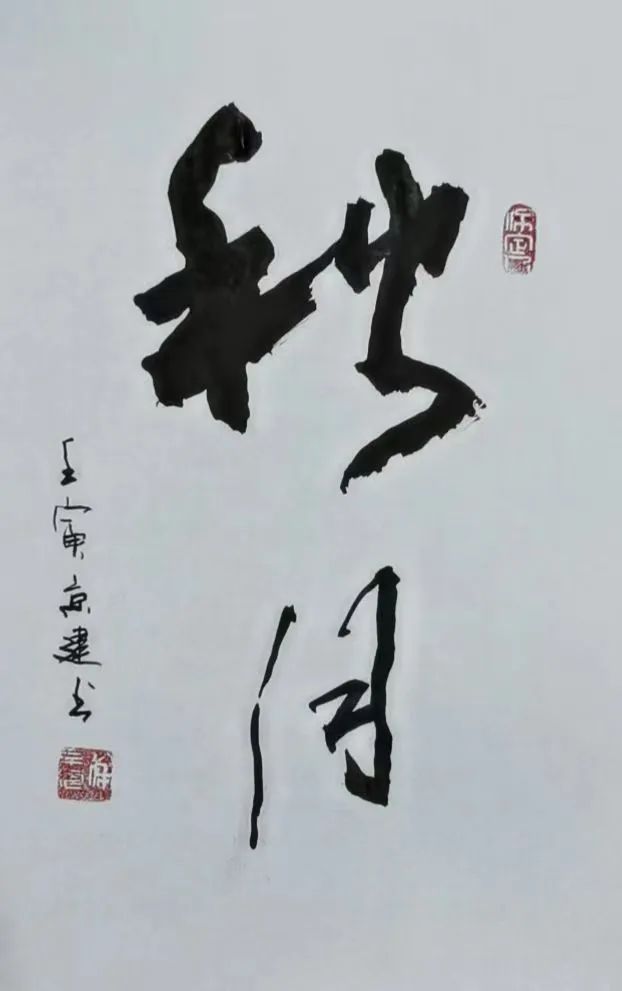 秋月
壬寅京建书